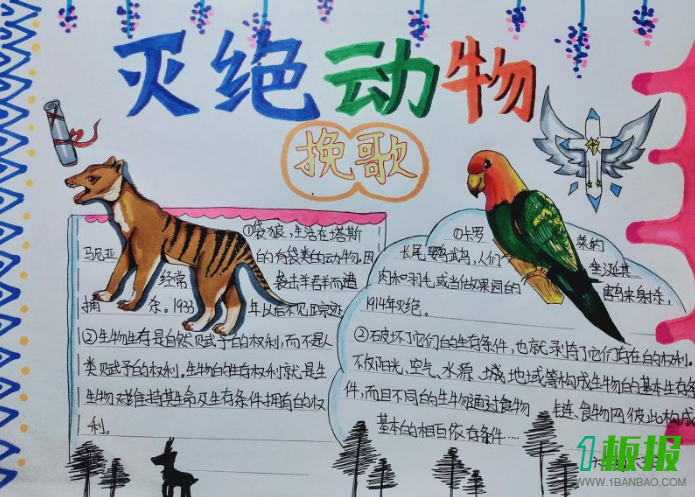 灭绝动物
挽歌
①袋狼,生活在塔斯
马尼亚 的有袋类的动物,因
经常 袭击羊群而遭
捕 杀。1933 年以后不见踪迹
②生物生存是自然赋予的权利,而不是人
类赋予的权利。生物的生存权利就是生
生物对维持其生命及生存条件拥有的权
利。
①卡罗 类的
长尾鹦鹉,人们
肉和羽毛或当做果园的 害鸟来身杀,
1914年灭绝。
②破坏了它们的生存条件,也就剥夺了它们存在的权利。
不仅阳光、空气、水源、 地域等构成生物的基本生存条
件,而且不同的生物通过食物 链、食物网彼此构成
基本的相互依存条件…
1板报
WWW.1BANBAO.COM